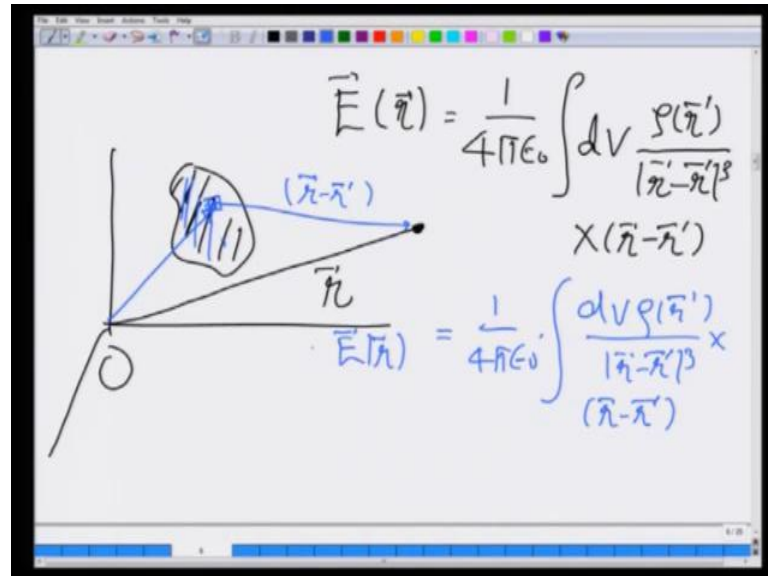 File Edit View Insert Actions Tools Help
B I
E⃗ (r⃗) = 1/4πε₀ ∫ dV ρ(r⃗')/|r⃗-r⃗'|³
X (r⃗-r⃗')
(r⃗-r⃗')
r⃗
O
E⃗(r⃗) = 1/4πε₀ ∫ dV ρ(r⃗')/|r⃗-r⃗'|³ X
(r⃗-r⃗')